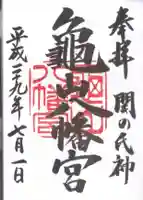 奉拝 関の氏神
亀山八幡宮
平成二十九年七月一日